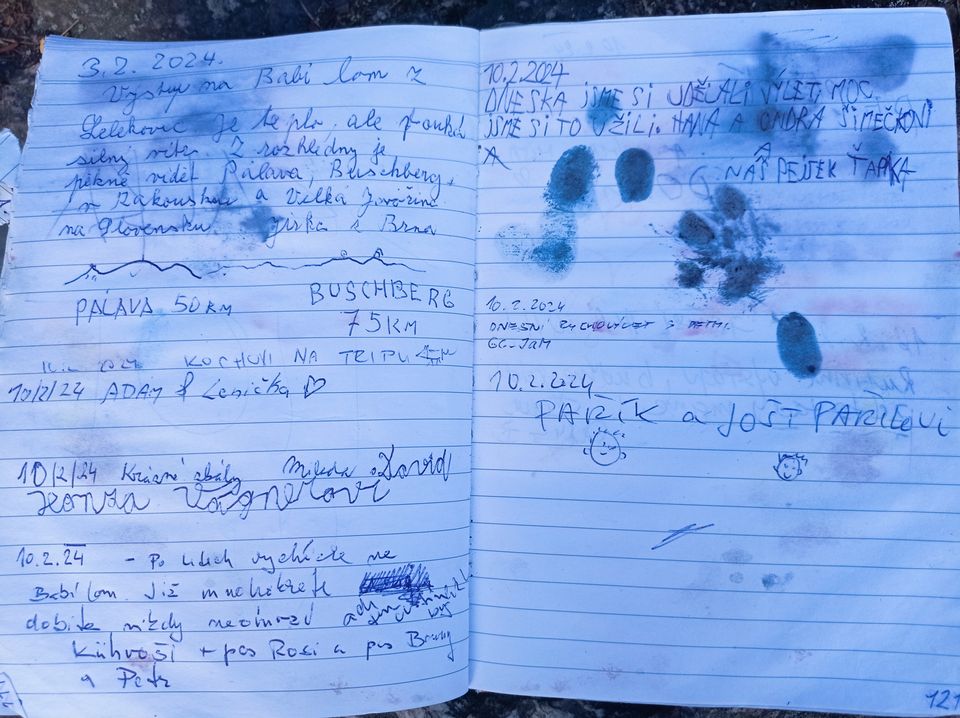 3.2.2024.
Výstup na Babí lom z
Lelekovic je teplo ale fouká
silný vítr. Z rozhledny je
pěkně vidět Pálava, Buschberg,
v Rakousku a Velká Javořina
na Slovensku. Jirka z Brna
PÁLAVA 50 KM
BUSCHBERG
75 KM
KOCHOVI NA TRIPU
10/2/24 ADAM & Lenička ♡
10/2/24 Krásné skály Milada David
Honza Vágnerovi
10.2.24 - Po letech vycházíte na
Babí lom. Již mnohokráte
dobita nikdy neomrzí
+ pes Rosi a pes
a Petr
10.2.2024
DNESKA JSME SI UDĚLALI VÝLET, MOC
JSME SI TO UŽILI. HANA A ONDRA ŠIMEČKOVI
A
NÁŠ PEJSEK ŤAPKA
10.2.2024
DNEŠNÍ S DETMI.
GC-JaM
10.2.2024
PAŘÍK a JOŠT PAŘÍLOVI
121